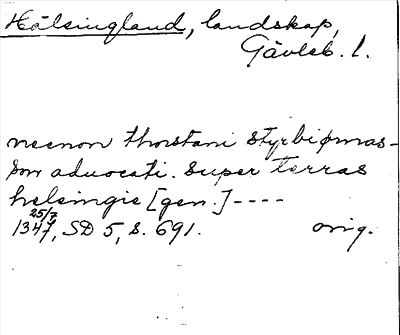 Hälsingland, landskap,
Gävleb. l.
necnon thorstani styrbiørnas-
son aduocati. super terras
helsingie [gen.] ----
25/7
1347, SD 5, s. 691. orig.